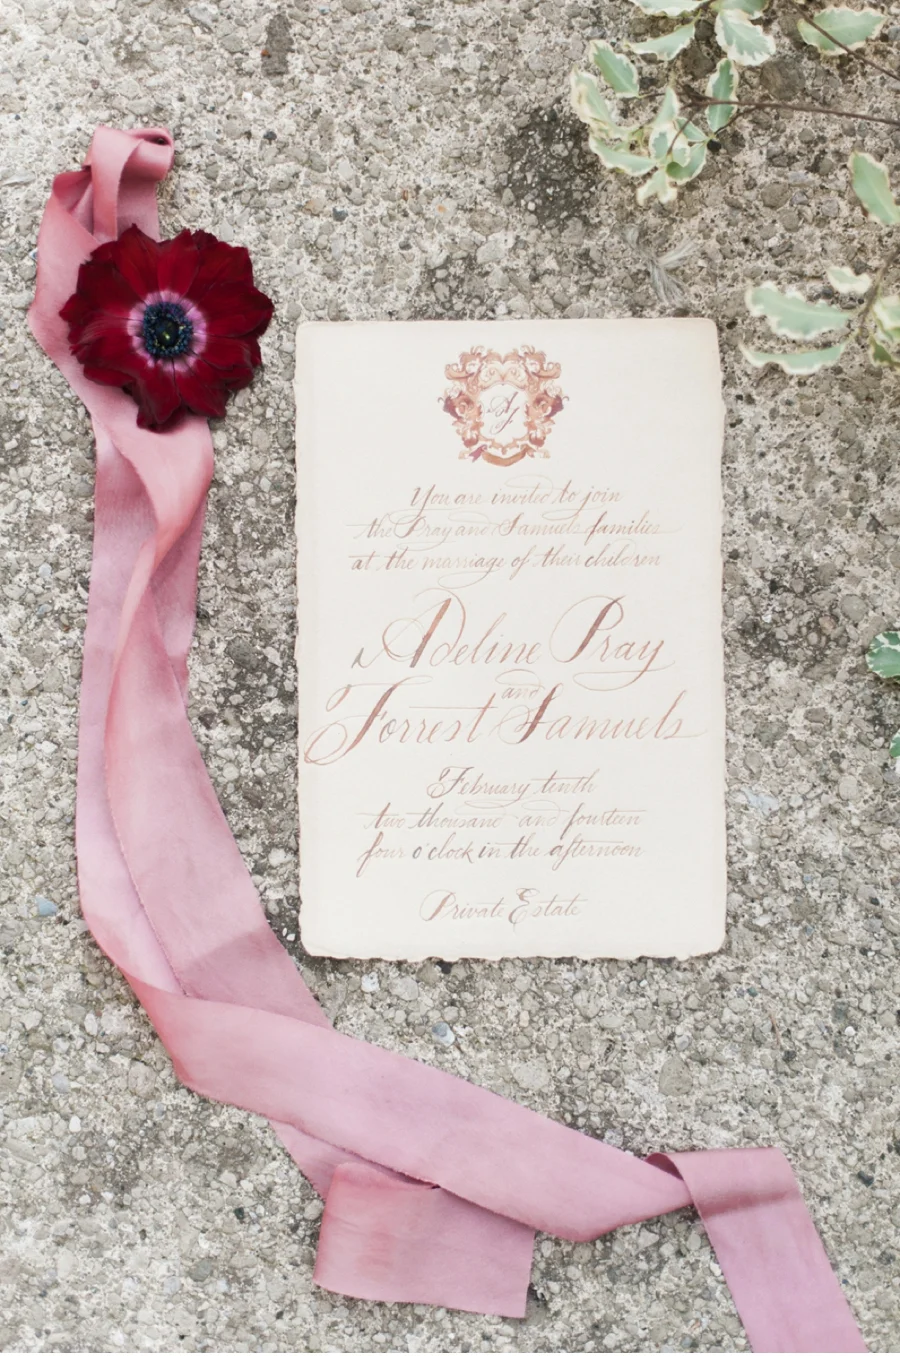 AF
You are invited to join
the Pray and Samuels families
at the marriage of their children
Adeline Pray
and
Forrest Samuels
February tenth
two thousand and fourteen
four o'clock in the afternoon
Private Estate